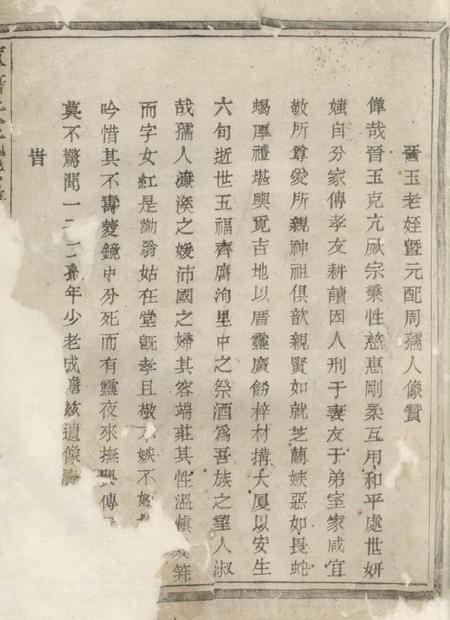 晉玉老姪暨元配周孺人像贊
偉哉晉玉克亢厥宗秉性慈惠剛柔互用和平處世妍
媸自分家傳孝友耕讀因人刑于妻友于弟室家咸宜
敬所尊愛所親神祖俱歆親賢如就芝蘭嫉惡如長蛇
蝎厚禮堪輿覓吉地以厝靈廣飭梓材搆大厦以安生
六旬逝世五福齊膺洵里中之祭酒爲吾族之望人淑
哉孺人濂溪之媛沛國之婦其容端莊其性溫慎 笄
而字女紅是勤翁姑在堂旣孝且敬 嫉不
吟惜其不壽菱鏡中分死而有靈夜來撫 傳
莫不驚聞一 孫年少老成瞻玆遺像
旹